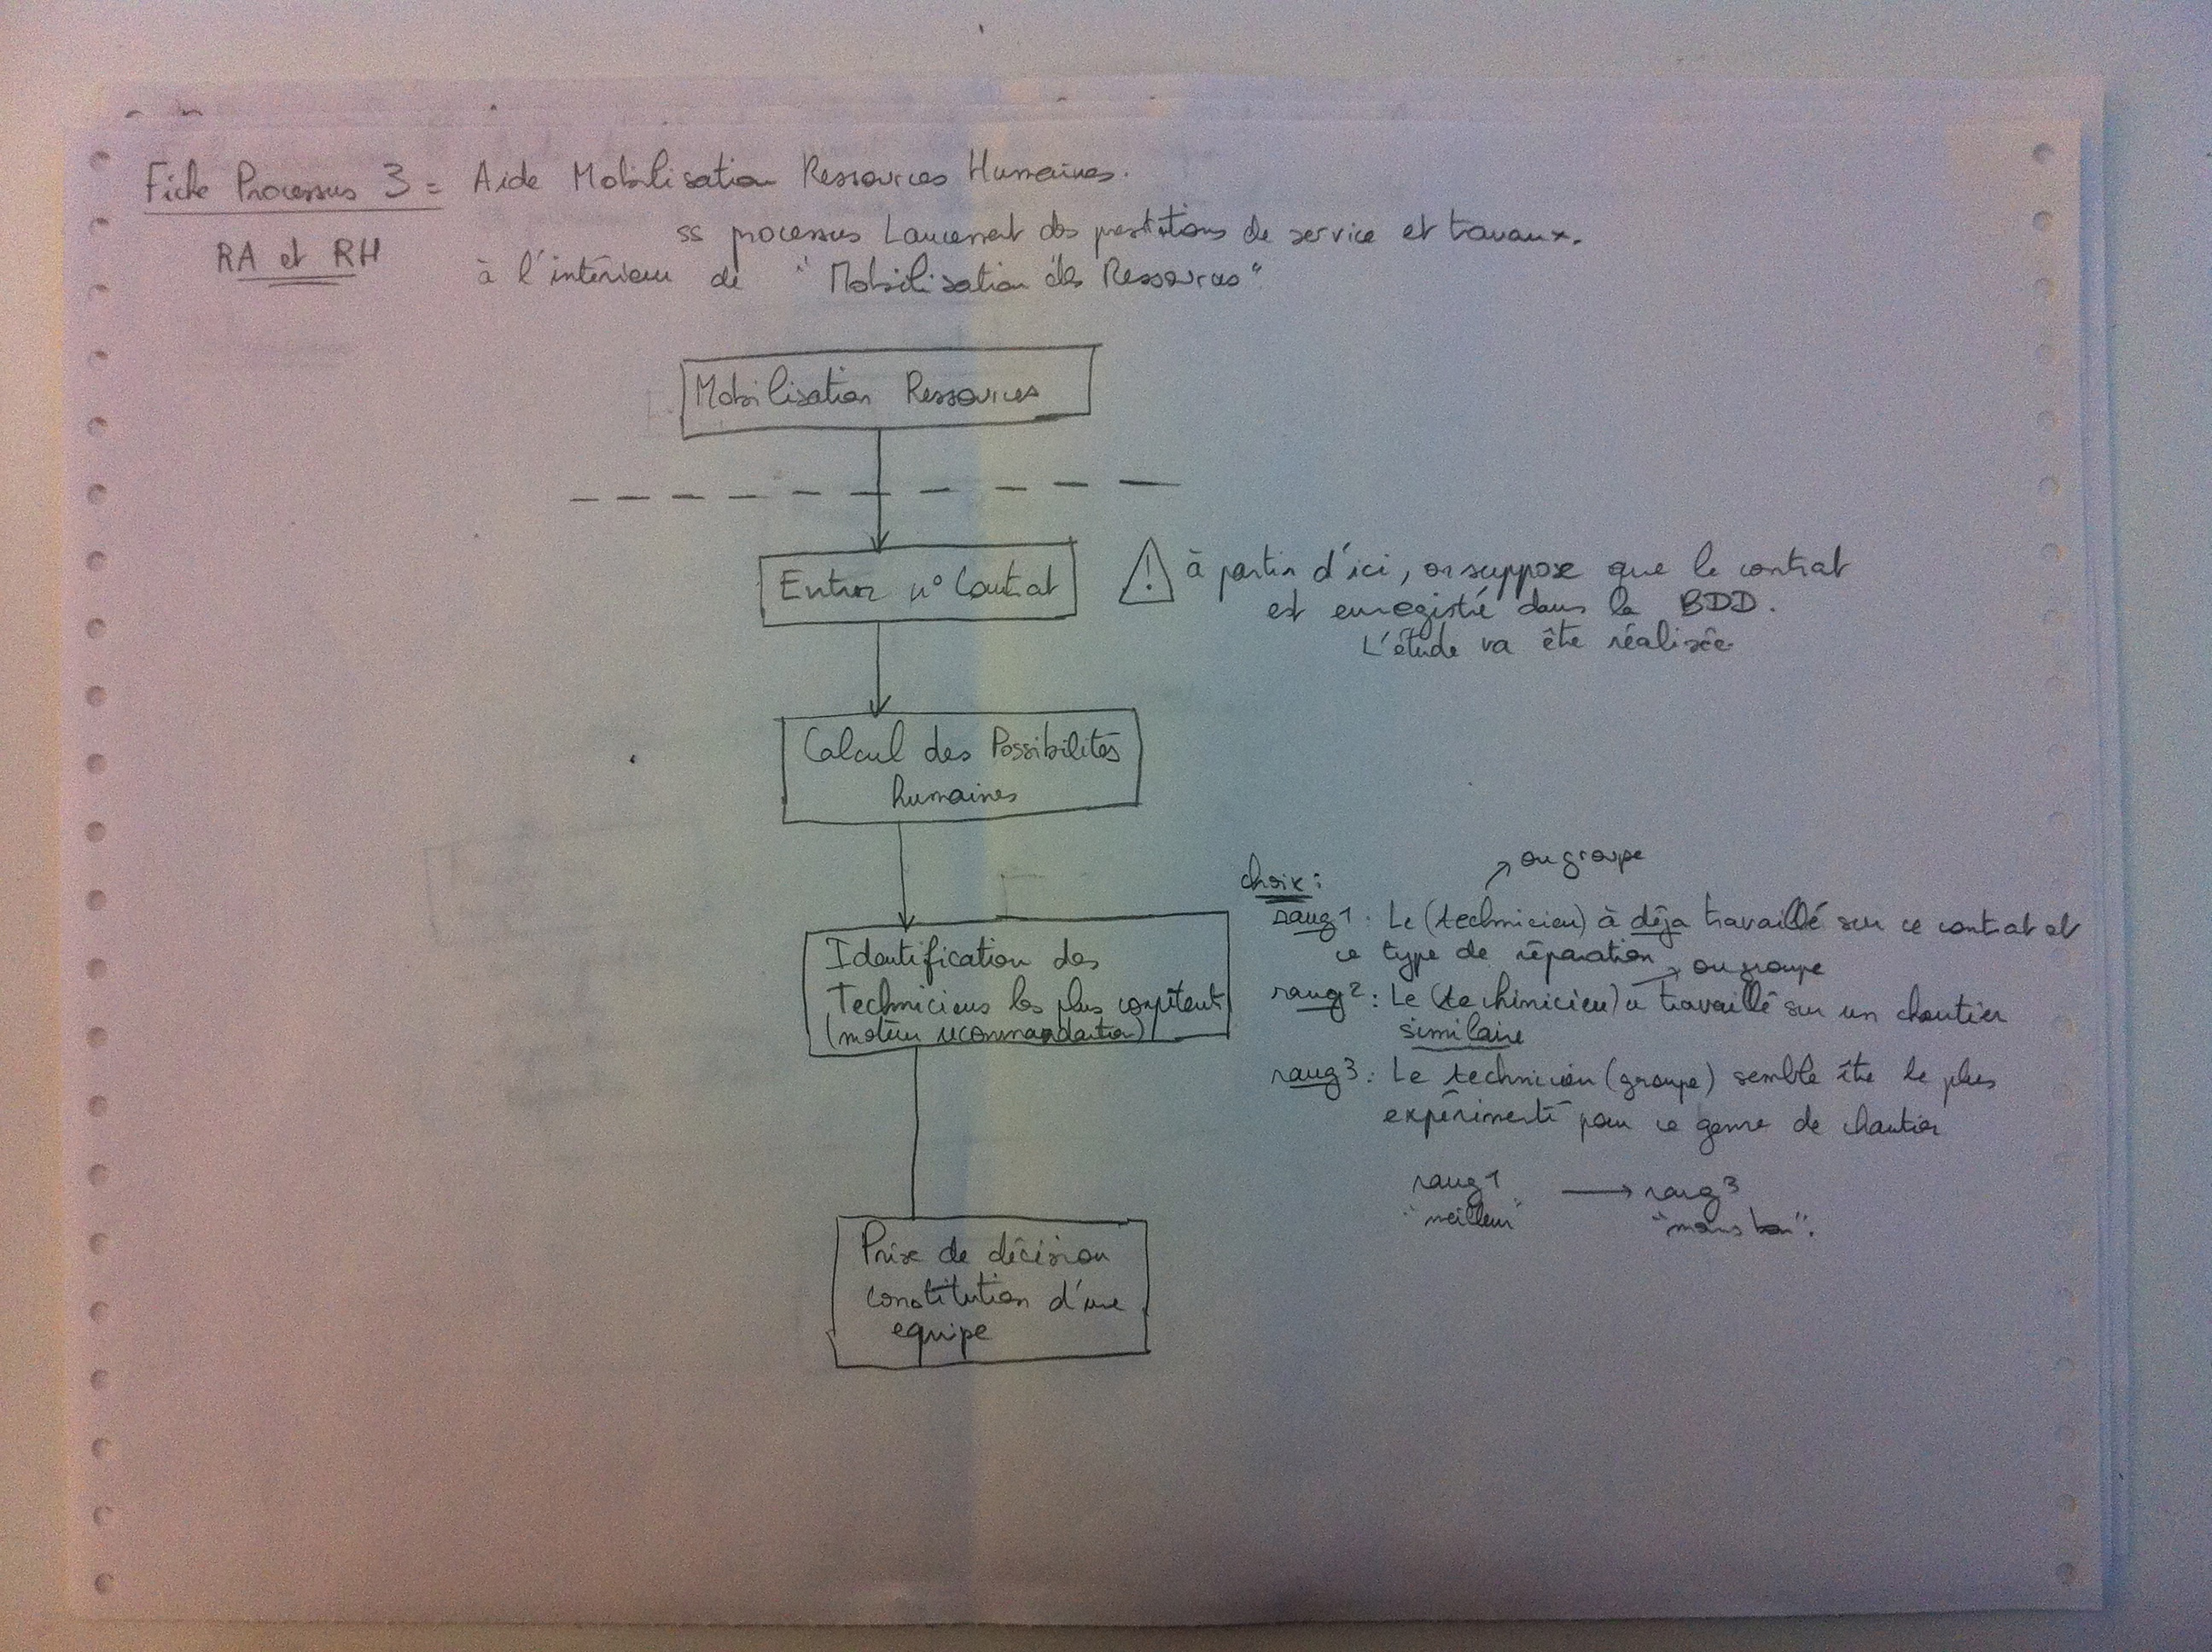 Fiche Processus 3 = Aide Mobilisation Ressources Humaines.
RA et RH
ss processus Lancement des prestations de service et travaux.
à l'intérieur de "Mobilisation des Ressources"
Mobilisation Ressources
Entrer n° Contrat
⚠ à partir d'ici, on suppose que le contrat
est enregistré dans la BDD.
L'étude va être réalisée
Calcul des Possibilités
humaines
Identification des
Techniciens les plus compétent
(moteur recommandation)
choix :
ou groupe
rang 1 : Le (technicien) à déja travaillé sur ce contrat et
ce type de réparation
ou groupe
rang 2 : Le (technicien) a travaillé sur un chantier
similaire
rang 3 : Le technicien (groupe) semble être le plus
expérimenté pour ce genre de chantier
rang 1 → rang 3
"meilleur" "moins bon".
Prise de décision
constitution d'une
equipe